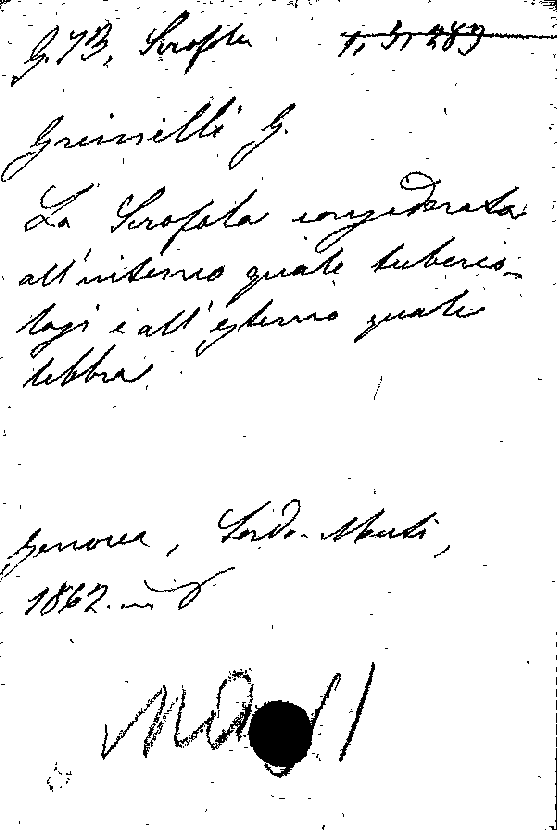 G. 73, Scrofola 1, 3, 283
Grimelli G.
La Scrofola considerata
all'interno quale tuberco-
losi e all'esterno quale
lebbra.
Genova, Sordo-Muti,
1862. in 8